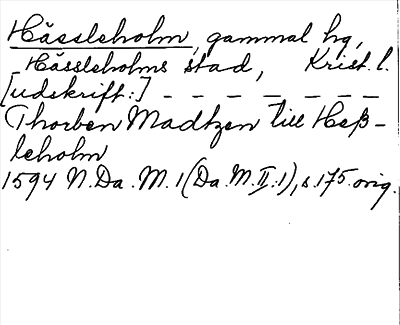 Hässleholm, gammal hg,
Hässleholms stad, Krist. l.
[udskrift:] - - - - - - -
Thorben Madtzen till Heß-
leholm
1594 N. Da. M. 1 (Da. M. II:1), s. 175. orig.